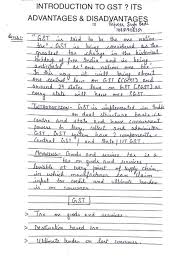 INTRODUCTION TO GST ? ITS
ADVANTAGES & DISADVANTAGES
"GST" is said to be the one nation
tax". GST is being considered as the
greatest tax change in the
history of free India and is being
one nation one
In this way it will bring about
one central law on GST (CGST) and
around 29 states law on GST (SGST) as
every state will have one SGST.
Introduction: GST is implemented in India
on dual structure basis i.e.
centre and state and have concurrent
powers to levy, collect and administer
GST. GST system have 2 components:-
Central GST) and State/UT GST.
Meaning: Goods and service tax is a
tax on goods and services
leviable at every point of supply chain
in which manufacturer can claim
input tax credit and ultimate burden
is on consumer
GST
Tax on goods and services
Destination based tax
Ultimate burden on last consumer